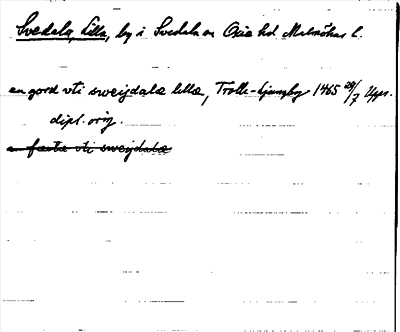 Svedala, Lilla, by i Svedala sn Oxie hd Malmöhus l.
en gord vti sweydala lilla, Trolle-Ljungby 1465 29/7 Upps.
dipl. orig.
en fæstæ vti sweydala